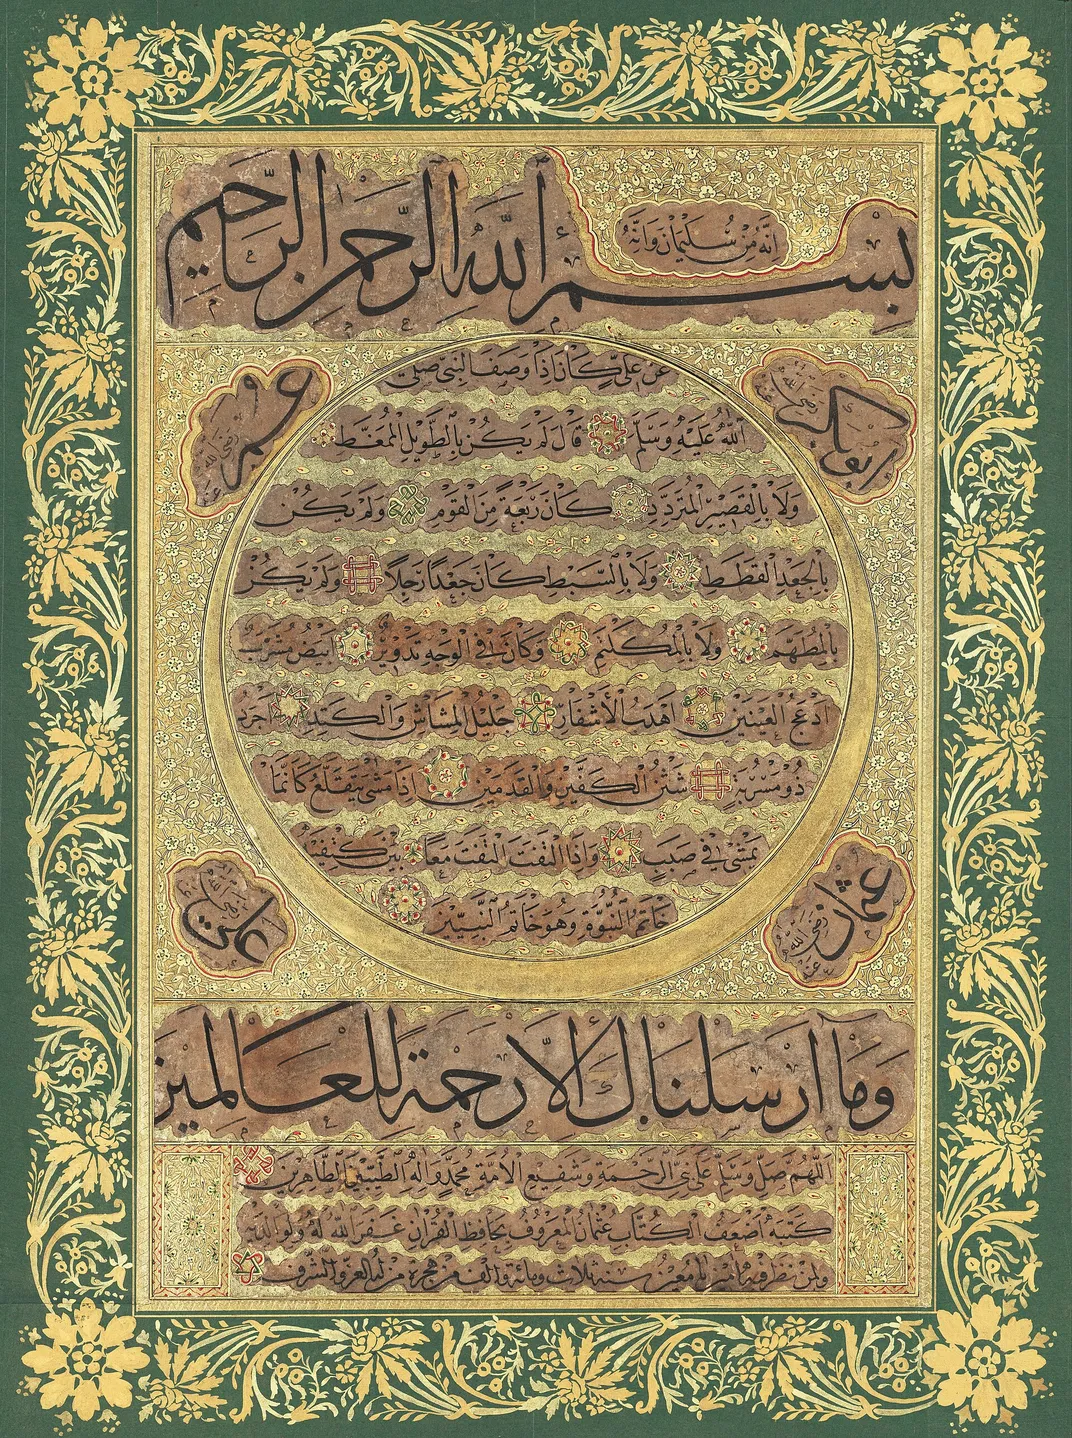 انه من سليمان وانه
بسم الله الرحمن الرحيم
ابو بكر رضي الله عنه
عمر رضي الله عنه
عن علي كان اذا وصف النبي صلى
الله عليه وسلم قال لم يكن بالطويل الممغط
ولا بالقصير المتردد كان ربعة من القوم ولم يكن
بالجعد القطط ولا بالسبط كان جعدا رجلا ولم يكن
بالمطهم ولا بالمكلثم وكان في الوجه تدوير ابيض مشرب
ادعج العينين اهدب الأشفار جليل المشاش والكتد اجرد
ذو مسربة شثن الكفين والقدمين اذا مشى يتقلع كانما
يمشي في صبب واذا التفت التفت معا بين كتفيه
خاتم النبوة وهو خاتم النبيين
عثمان رضي الله عنه
علي رضي الله عنه
وما أرسلناك إلا رحمة للعالمين
اللهم صل وسلم على نبي الرحمة وشفيع الامة محمد واله الطيبين الطاهرين
كتبه اضعف الكتاب عثمان المعروف بحافظ القرآن غفر الله له ولوالديه
ولمن نظر فيه آمين يا معين سنة ثلاث ومائة والف من هجرة من له العز والشرف